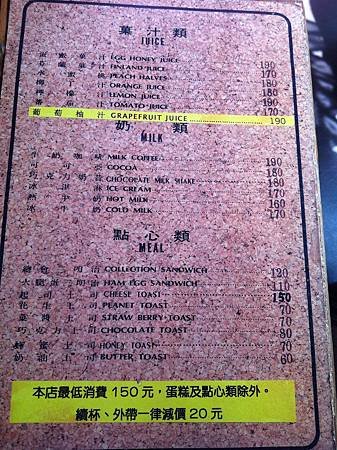 菓汁類
JUICE
蛋蜜菓汁 EGG HONEY JUICE 190
汁 FINLAND JUICE 170
水蜜桃 PEACH HALVES 180
汁 ORANGE JUICE 180
檸檬汁 LEMON JUICE 190
汁 TOMATO JUICE 170
葡萄柚汁 GRAPEFRUIT JUICE 190
奶類
MILK
牛奶咖啡 MILK COFFEE 190
可可亞 COCOA 180
巧克力奶昔 CHOCOLATE MILK SHAKE 180
冰淇淋 ICE CREAM 170
熱牛奶 HOT MILK 160
冰牛奶 COLD MILK 170
點心類
MEAL
總會三明治 COLLECTION SANDWICH 120
火腿蛋三明治 HAM EGG SANDWICH 110
起司土司 CHEESE TOAST 150
花生土司 PEANET TOAST 70
菓醬土司 STRAW BERRY TOAST 70
巧克力土司 CHOCOLATE TOAST 80
蜂蜜土司 HONEY TOAST 70
奶油土司 BUTTER TOAST 60
本店最低消費150元，蛋糕及點心類除外。
續杯、外帶一律減價20元